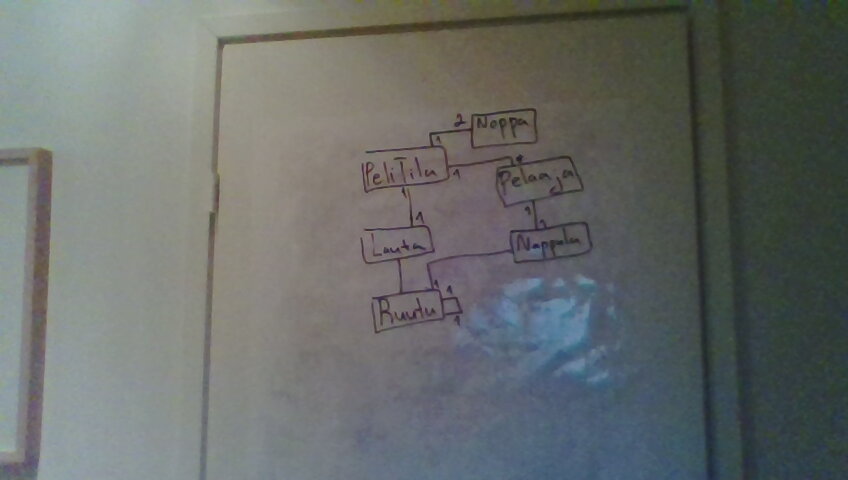 2 Noppa
1
PeliTila 1 *
Pelaaja
1 1
1 1
Lauta Nappula
1 1
Ruutu
1